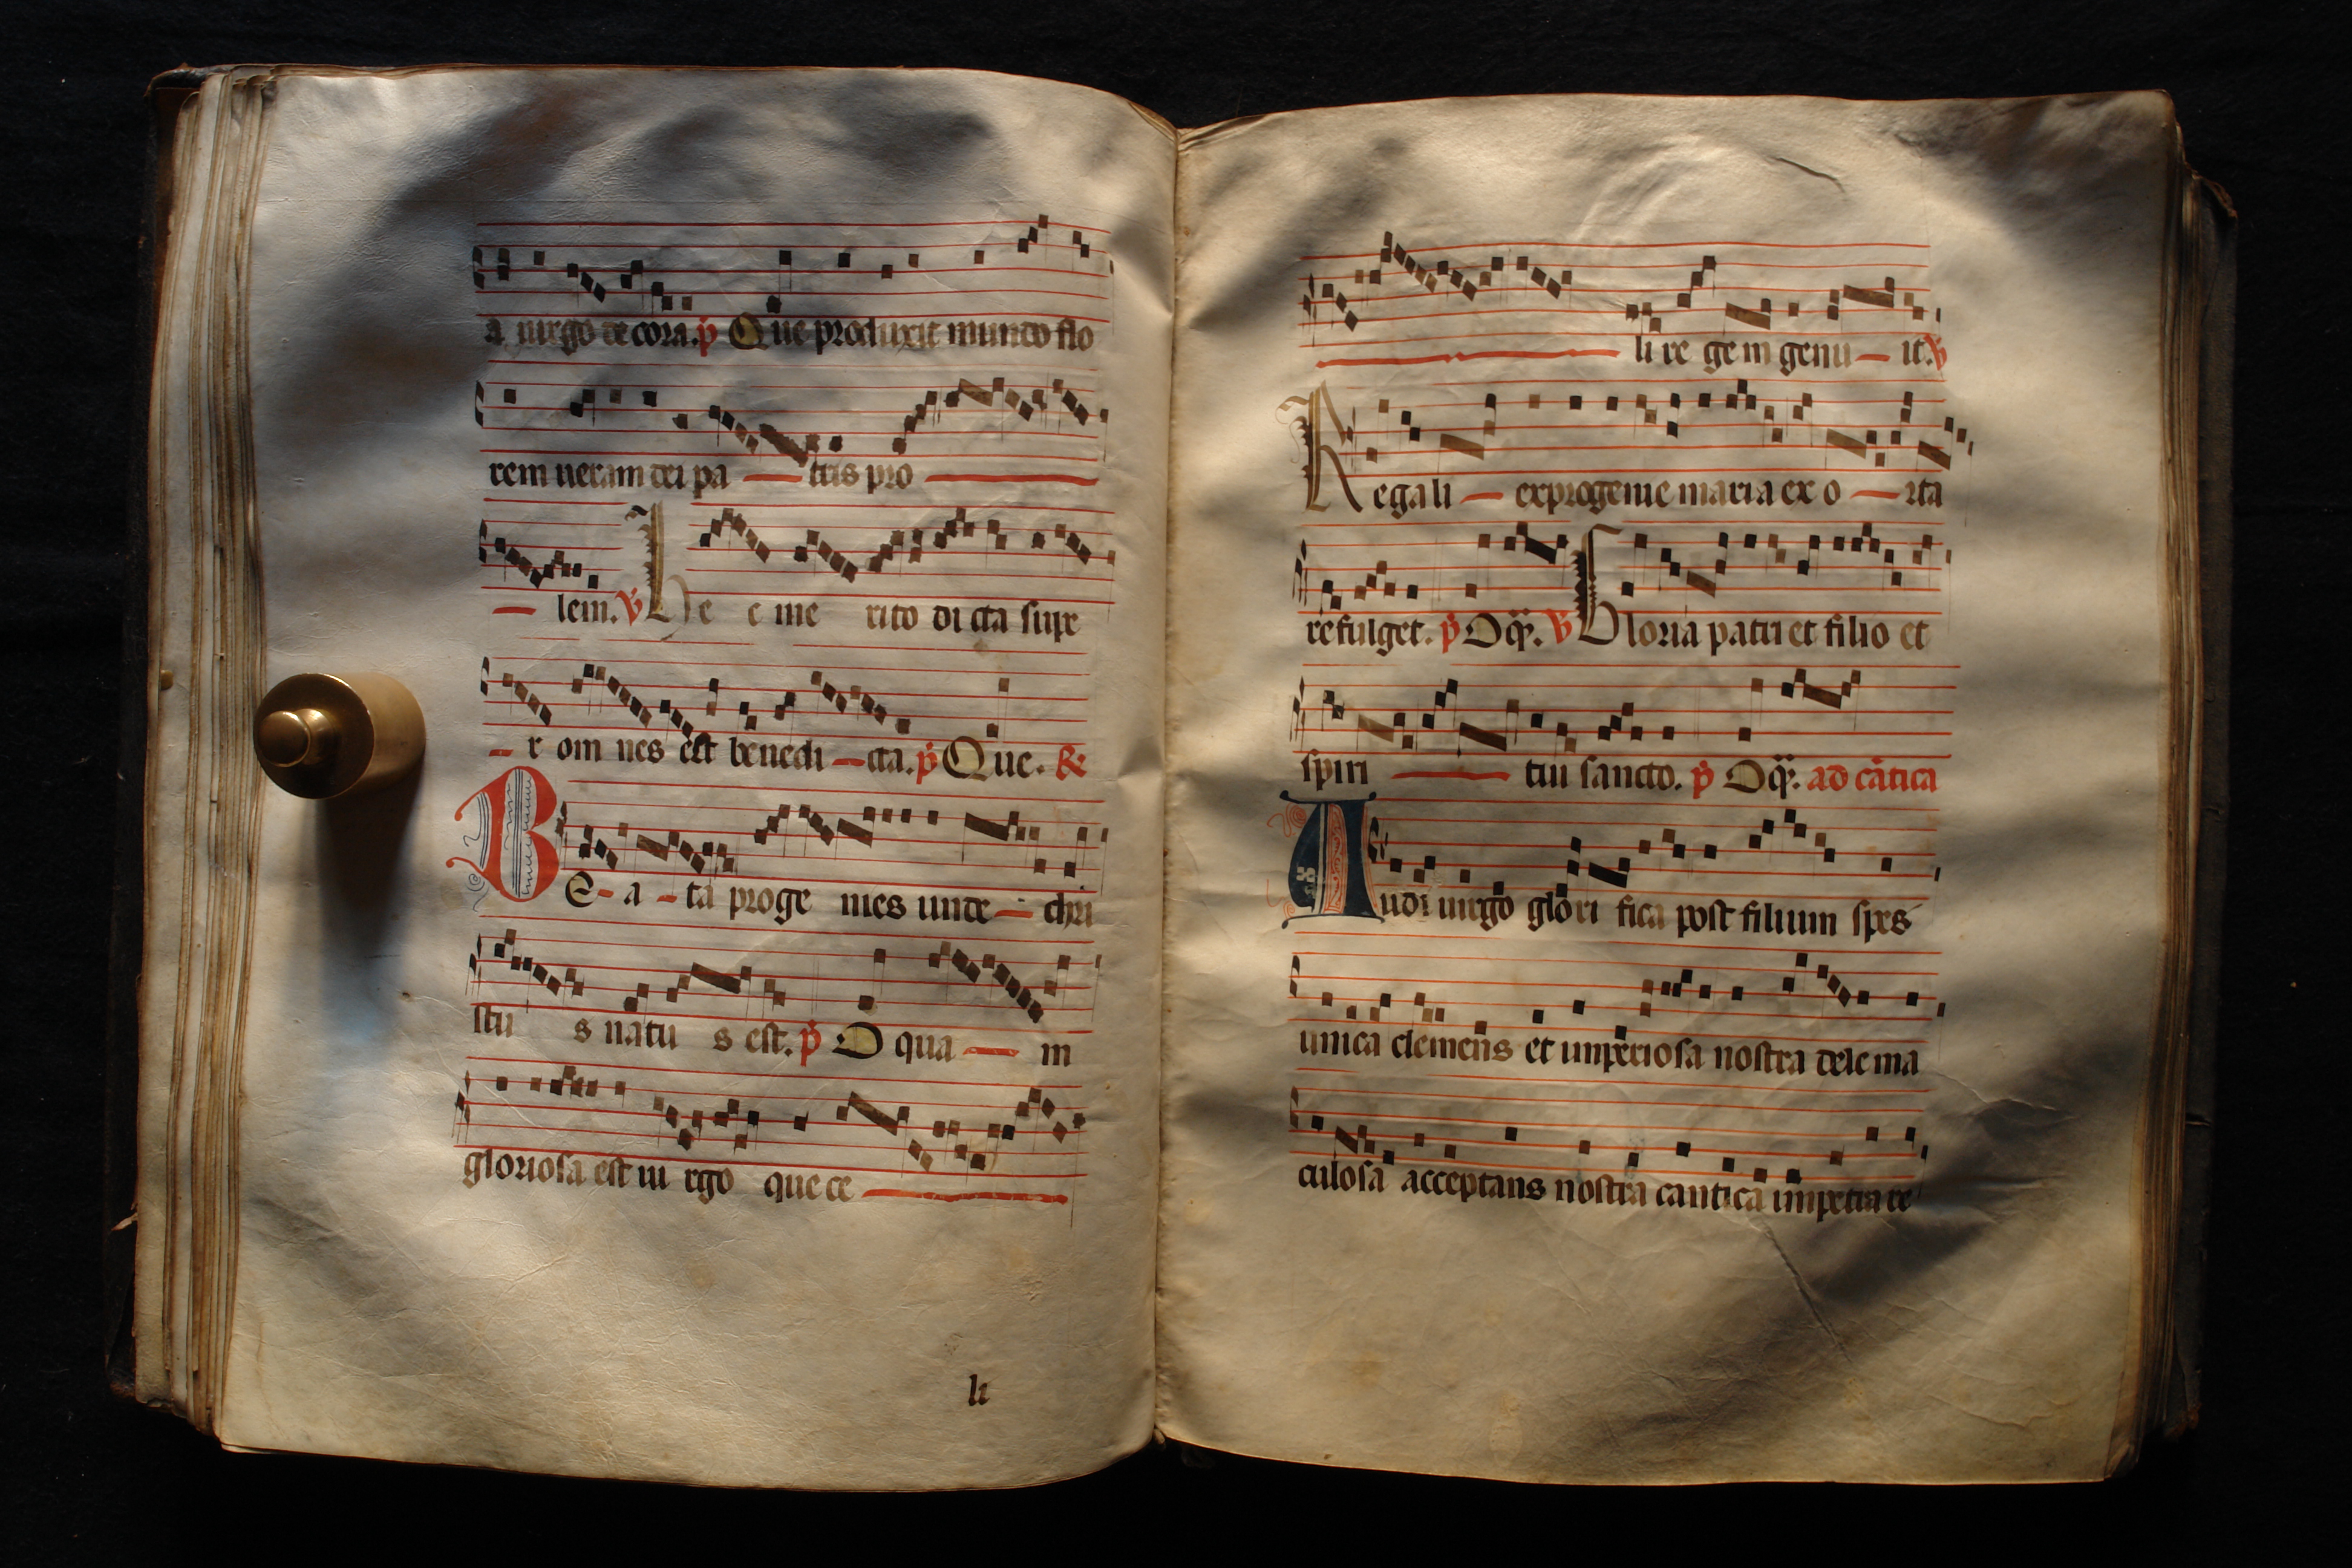 a uirgo decora. p̄ Que produxit mundo flo
rem ueram dei pa — tris pro —
— lem. v̄ Hec me rito dicta supe
— r omnes est benedi — cta. p̄ Que. R
BE - a - ta proge nies unde — chri
stu s natu s est. p̄ O qua — m
gloriosa est ui rgo que ce —
li
— li regem genu — it. v̄
Regali — ex progenie maria exo — rta
refulget. p̄ O q̄. v̄ Gloria patri et filio et
spiri — tui sancto. p̄ O q̄. ad cātica
Audi uirgo glori fica post filium spes
unica clemens et imperiosa nostra dele ma
culosa acceptans nostra cantica impetra re